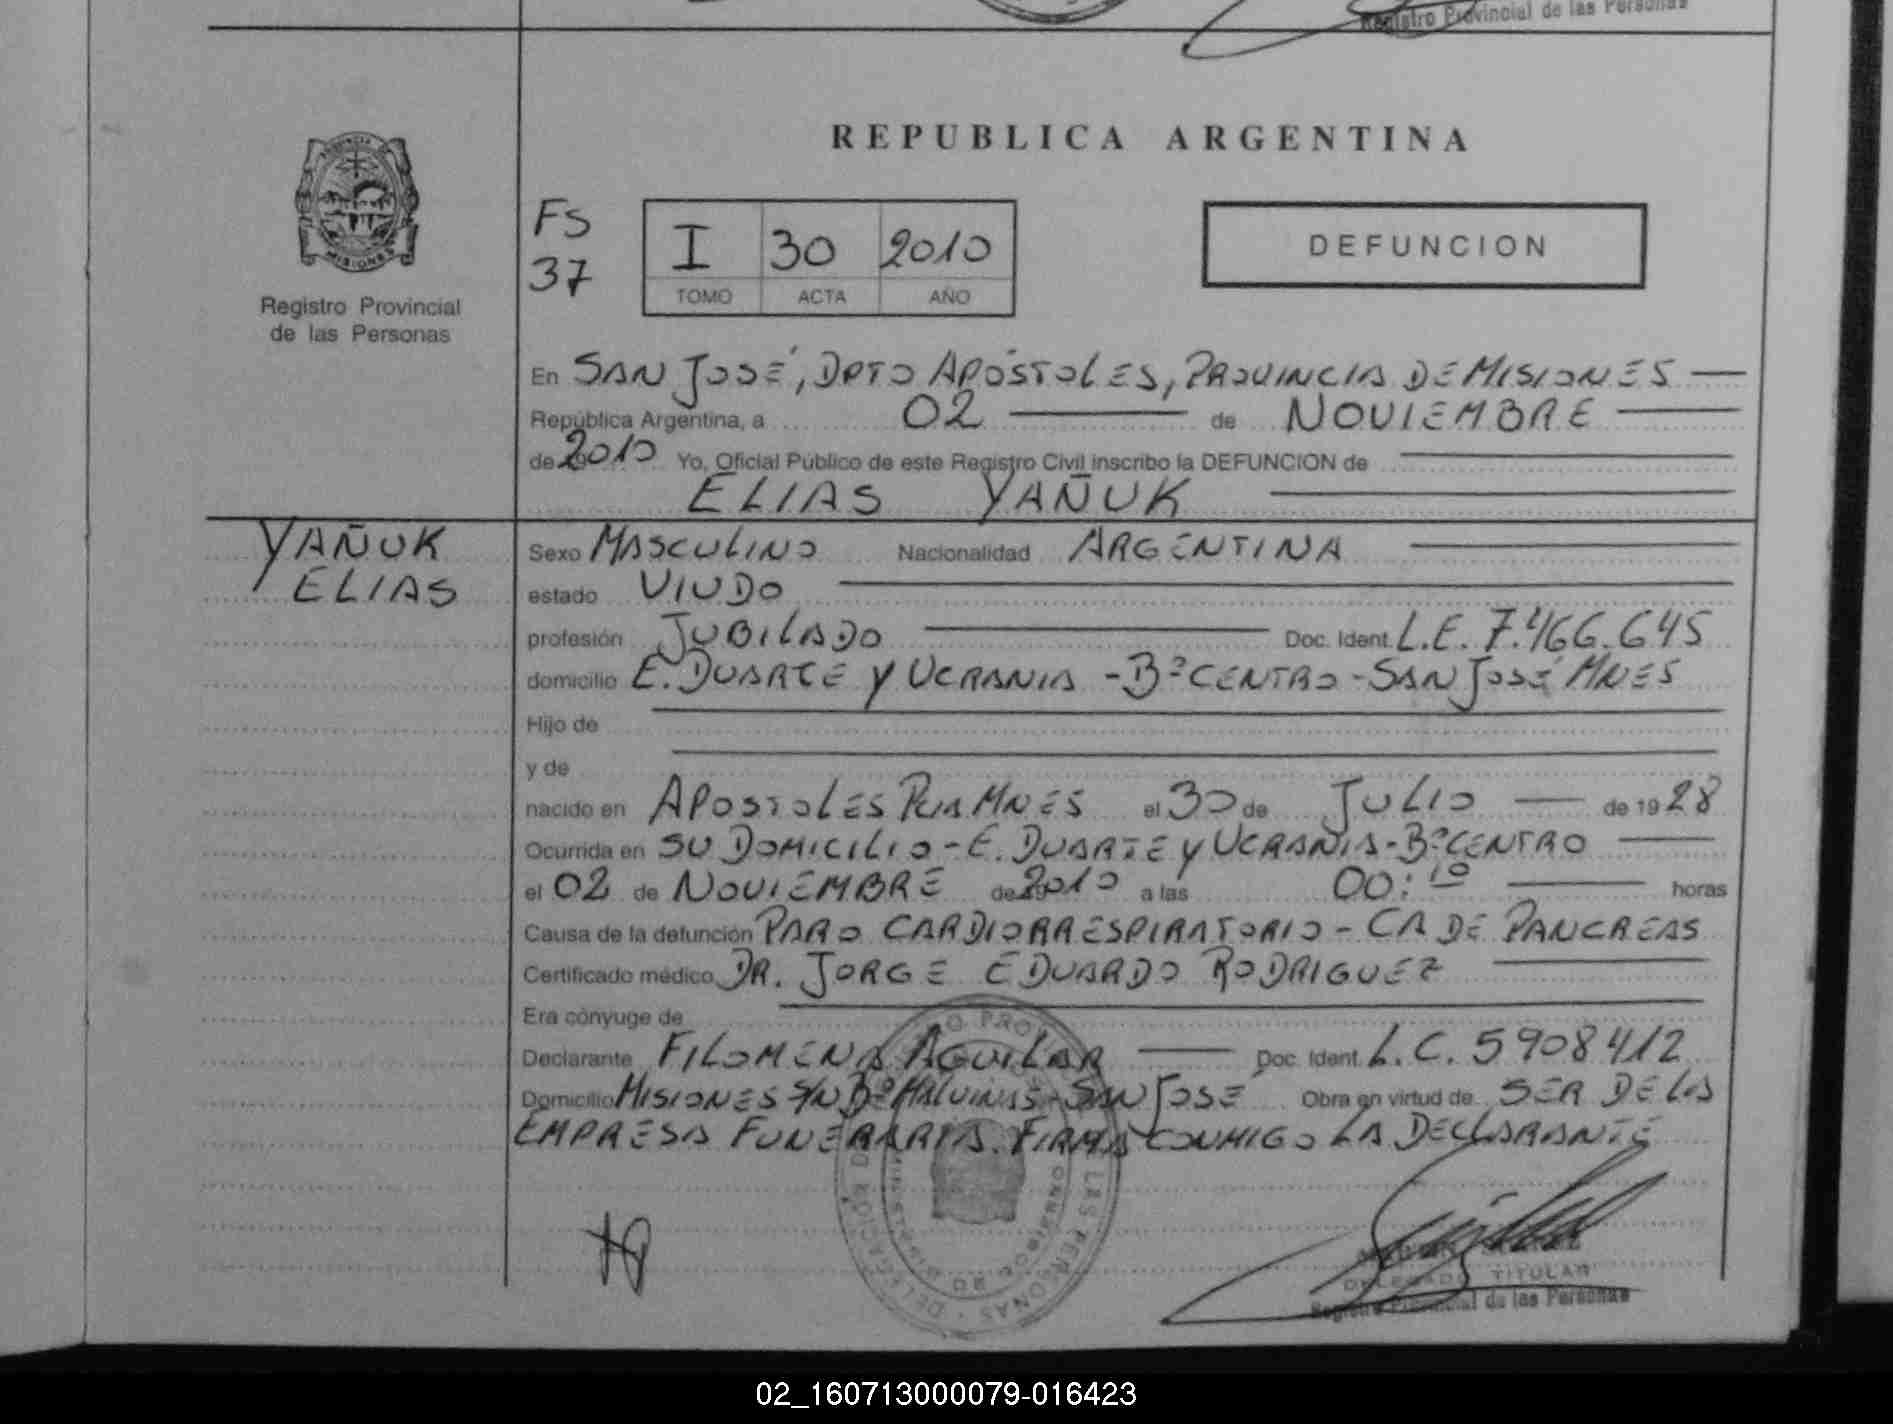 Registro Provincial de las Personas
REPUBLICA ARGENTINA
PROVINCIA DE
MISIONES
Registro Provincial
de las Personas
FS
37
I 30 2010
TOMO ACTA AÑO
DEFUNCION
En SAN JOSÉ, DPTO APÓSTOLES, PROVINCIA DE MISIONES
República Argentina, a 02 de NOVIEMBRE
de 2010 Yo, Oficial Público de este Registro Civil inscribo la DEFUNCION de
ELIAS YAÑUK
YAÑUK
ELIAS
Sexo MASCULINO Nacionalidad ARGENTINA
estado VIUDO
profesión JUBILADO Doc. Ident. L.E. 7.466.645
domicilio E. DUARTE Y UCRANIA - Bº CENTRO - SAN JOSÉ MNES
Hijo de
y de
nacido en APOSTOLES PCIA MNES el 30 de JULIO de 1928
Ocurrida en SU DOMICILIO - E. DUARTE Y UCRANIA - Bº CENTRO
el 02 de NOVIEMBRE de 2010 a las 00:10 horas
Causa de la defunción PARO CARDIORRESPIRATORIO - CA DE PANCREAS
Certificado médico DR. JORGE EDUARDO RODRIGUEZ
Era cónyuge de
Declarante FILOMENA AGUILAR Doc. Ident. L.C. 5908412
Domicilio MISIONES S/N Bº MALVINAS - SAN JOSÉ Obra en virtud de SER DE LA
EMPRESA FUNERARIA. FIRMA CONMIGO LA DECLARANTE
DELEGADO TITULAR
Registro Provincial de las Personas
02_160713000079-016423